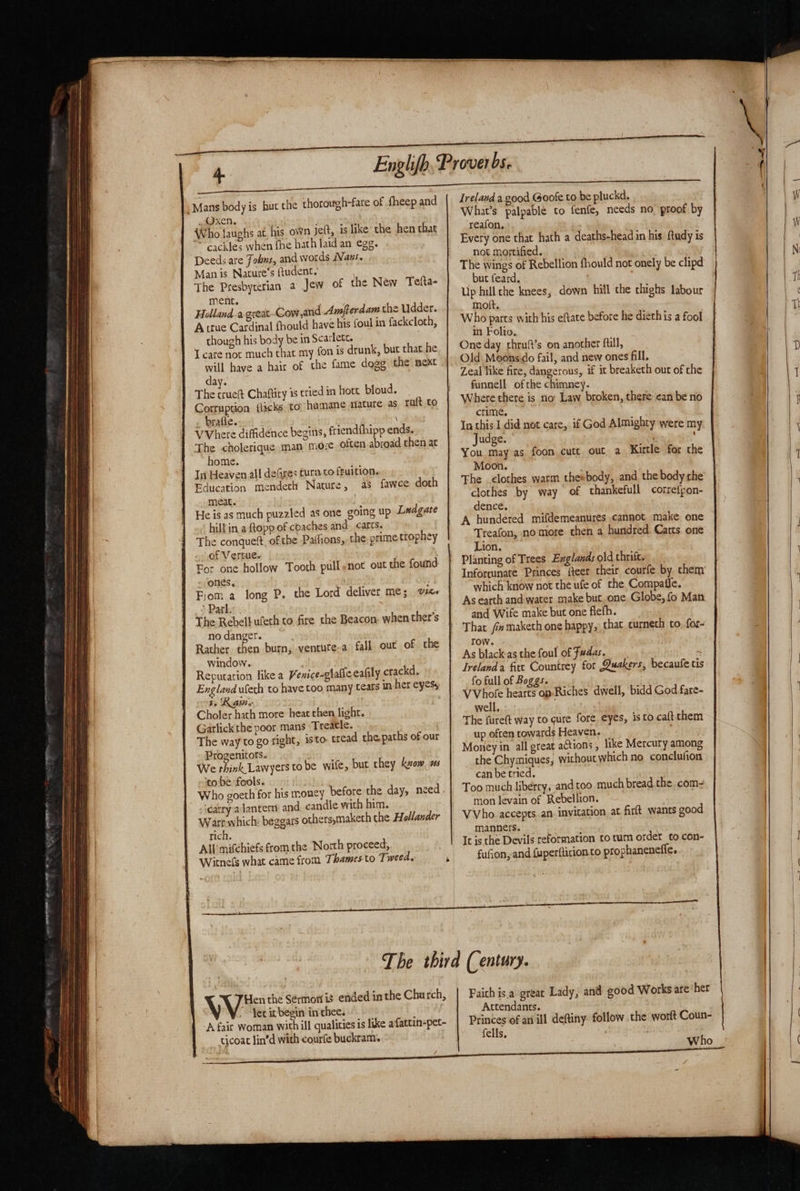 4
English Proverbs.
Mans body is but the thorough-fare of sheep and
Oxen.
Who laughs at his own jest, is like the hen that
cackles when she hath laid an egg.
Deeds are Johns, and words Nans.
Man is Nature's student.
The Presbyterian a Jew of the New Testa-
ment.
Holland a great Cow, and Amsterdam the Udder.
A true Cardinal should have his soul in sackcloth,
though his body be in Scarlett.
I care not much that my son is drunk, but that he
will have a hair of the same dogg the next
day.
The truest Chastity is tried in hott bloud.
Corruption sticks to humane nature as rust to
brasse.
VVhere diffidence begins, friendshipp ends.
The cholerique man more often abroad then at
home.
In Heaven all desires turn to fruition.
Education mendeth Nature, as sawce doth
meat.
He is as much puzzled as one going up Ludgate
hill in a stopp of coaches and carts.
The conquest of the Passions, the prime trophey
of Vertue.
For one hollow Tooth pull not out the found
ones.
From a long P. the Lord deliver me; viz.
Parl.
The Rebell useth to fire the Beacon when ther's
no danger.
Rather then burn, venture a fall out of the
window.
Reputation like a Venice-glasse easily crackd.
England useth to have too many tears in her eyes,
Rain.
Choler hath more heat then light.
Garlick the poor mans Treacle.
The way to go right, is to tread the paths of our
Progenitors.
We think Lawyers to be wise, but they know us
to be fools.
Who goeth for his money before the day, need
carry a lantern and candle with him.
Warr which beggars others, maketh the Hollander
rich.
All mischiefs from the North proceed,
Witness what came from Thames to Tweed.
Ireland a good Goose to be pluckd.
What's palpable to sense, needs no proof by
reason.
Every one that hath a deaths-head in his study is
not mortified.
The wings of Rebellion should not onely be clipd
but seard.
Up hill the knees, down hill the thighs labour
most.
Who parts with his estate before he dieth is a fool
in Folio.
One day thrust's on another still,
Old Moons do fail, and new ones fill.
Zeal like fire, dangerous, if it breaketh out of the
funnell of the chimney.
Where there is no Law broken, there can be no
crime.
In this I did not care, if God Almighty were my
Judge.
You may as soon cutt out a Kirtle for the
Moon.
The clothes warm the body, and the body the
clothes by way of thankfull correspon-
dence.
A hundered misdemeanures cannot make one
Treason, no more then a hundred Catts one
Lion.
Planting of Trees Englands old thrift.
Infortunate Princes steer their course by them
which know not the use of the Compasse.
As earth and water make but one Globe, so Man
and Wife make but one flesh.
That sin maketh one happy, that turneth to sor-
row.
As black as the soul of Judas.
Ireland a fitt Countrey for Quakers, because tis
so full of Boggs.
VVhose hearts on Riches dwell, bidd God fare-
well.
The surest way to cure sore eyes, is to cast them
up often towards Heaven.
Money in all great actions, like Mercury among
the Chymiques, without which no conclusion
can be tried.
Too much liberty, and too much bread the com-
mon levain of Rebellion.
VVho accepts an invitation at first wants good
manners.
It is the Devils reformation to turn order to con-
fusion, and superstition to prophanenesse.
The third Century.
WHen the Sermon is ended in the Church,
let it begin in thee.
A fair woman with ill qualities is like a sattin-pet-
ticoat lin'd with course buckram.
Faith is a great Lady, and good Works are her
Attendants.
Princes of an ill destiny follow the worst Coun-
sells.
Who